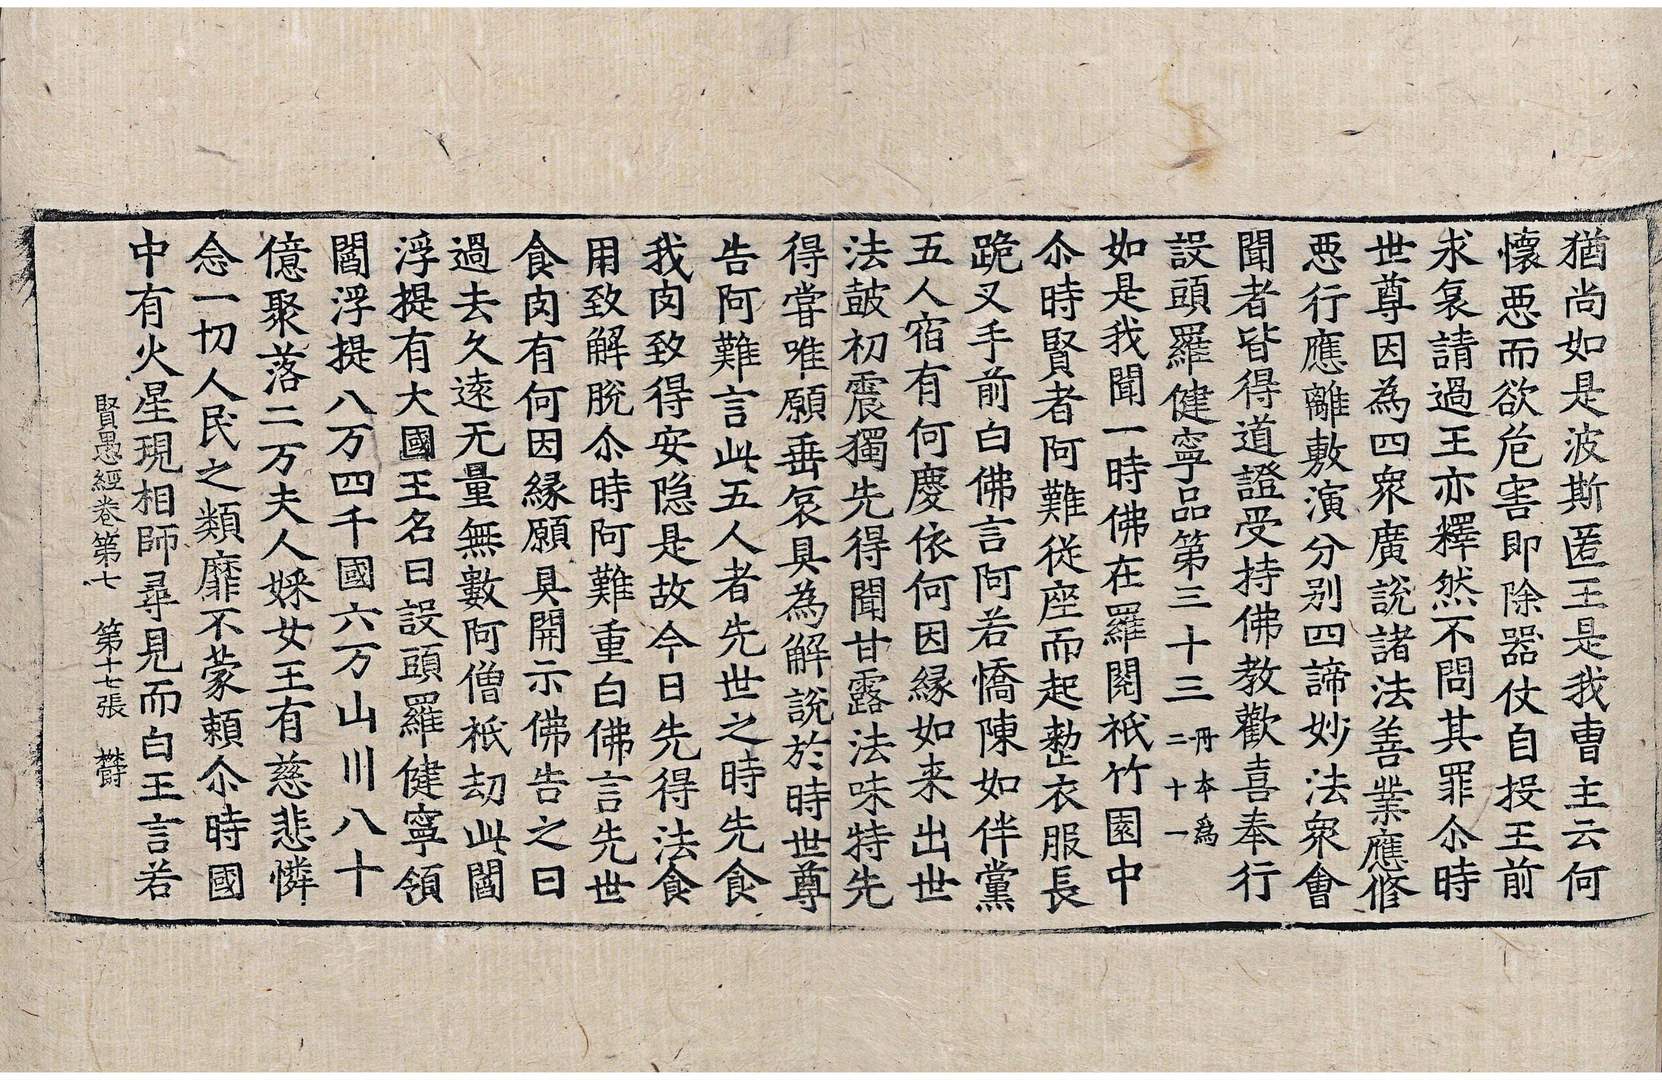 猶尚如是波斯匿王是我曹主云何
懷惡而欲危害即除器仗自投王前
求哀請過王亦釋然不問其罪尒時
世尊因為四衆廣說諸法善業應修
惡行應離敷演分别四諦妙法衆會
聞者皆得道證受持佛教歡喜奉行
設頭羅健寧品第三十三 丹本為二十一
如是我聞一時佛在羅閱祇竹園中
尒時賢者阿難從座而起整衣服長
跪叉手前白佛言阿若憍陳如伴黨
五人宿有何慶依何因縁如来出世
法鼓初震獨先得聞甘露法味特先
得甞唯願垂哀具為解說於時世尊
告阿難言此五人者先世之時先食
我肉致得安隐是故今日先得法食
用致解脫尒時阿難重白佛言先世
食肉有何因縁願具開示佛告之曰
過去久遠无量無數阿僧祇劫此閻
浮提有大國王名曰設頭羅健寧領
閻浮提八万四千國六万山川八十
億聚落二万夫人婇女王有慈悲憐
念一切人民之類靡不蒙賴尒時國
中有火星現相師尋見而白王言若
賢愚經卷第七 第十七張 欝